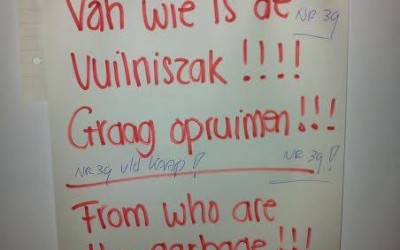 Van wie is de NR 39
Vuilniszak !!!!
Graag opruimen !!!
NR 39 v/d KAAP! NR 39!
From who are
the garbage !!!